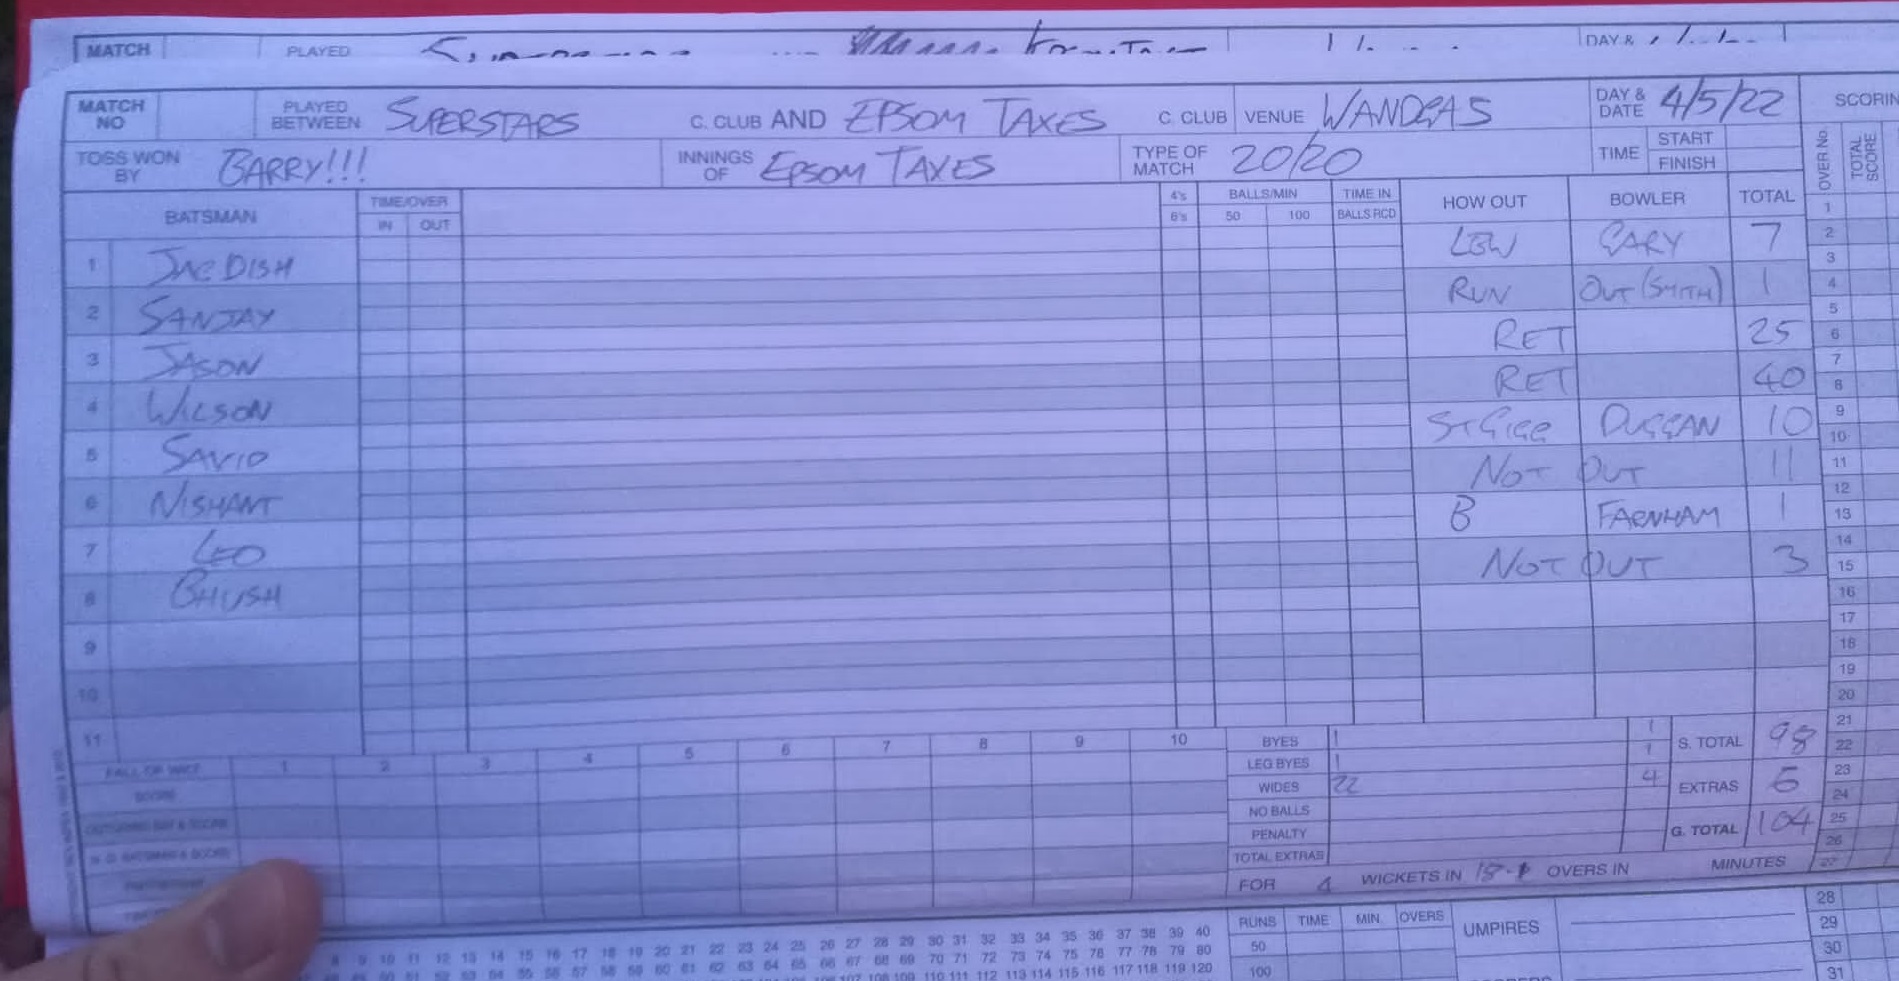 MATCH PLAYED DAY &
MATCH NO PLAYED BETWEEN SUPERSTARS C. CLUB AND EPSOM TAXES C. CLUB VENUE WANDGAS DAY & DATE 4/5/22 SCORIN
TOSS WON BY BARRY!!! INNINGS OF EPSOM TAXES TYPE OF MATCH 20/20 TIME START FINISH OVER NO TOTAL SCORE
BATSMAN TIME/OVER IN OUT 4's 6's BALLS/MIN 50 100 TIME IN BALLS RCD HOW OUT BOWLER TOTAL
1 JAGDISH LBW GARY 7
2 SANJAY RUN OUT (SMITH) 1
3 JASON RET 25
4 WILSON RET 40
5 SAVIO ST GIGG DUGGAN 10
6 NISHANT NOT OUT 11
7 LEO B FARNHAM 1
8 BHUSH NOT OUT 3
9
10
11
1
2
3
4
5
6
7
8
9
10
11
12
13
14
15
16
17
18
19
20
21
22
23
24
25
26
27
FALL OF WKT 1 2 3 4 5 6 7 8 9 10
SCORE
BYES 1 1 S. TOTAL 98
LEG BYES 1 1
WIDES 22 4 EXTRAS 6
NO BALLS
PENALTY G. TOTAL 104
TOTAL EXTRAS
FOR 4 WICKETS IN OVERS IN MINUTES
8 9 10 11 12 13 14 15 16 17 18 19 20 21 22 23 24 25 26 27 28 29 30 31 32 33 34 35 36 37 38 39 40
50 51 52 53 54 55 56 57 58 59 60 61 62 63 64 65 66 67 68 69 70 71 72 73 74 75 76 77 78 79 80
107 108 109 110 111 112 113 114 115 116 117 118 119 120
RUNS TIME MIN. OVERS UMPIRES
50
100
28
29
30
31